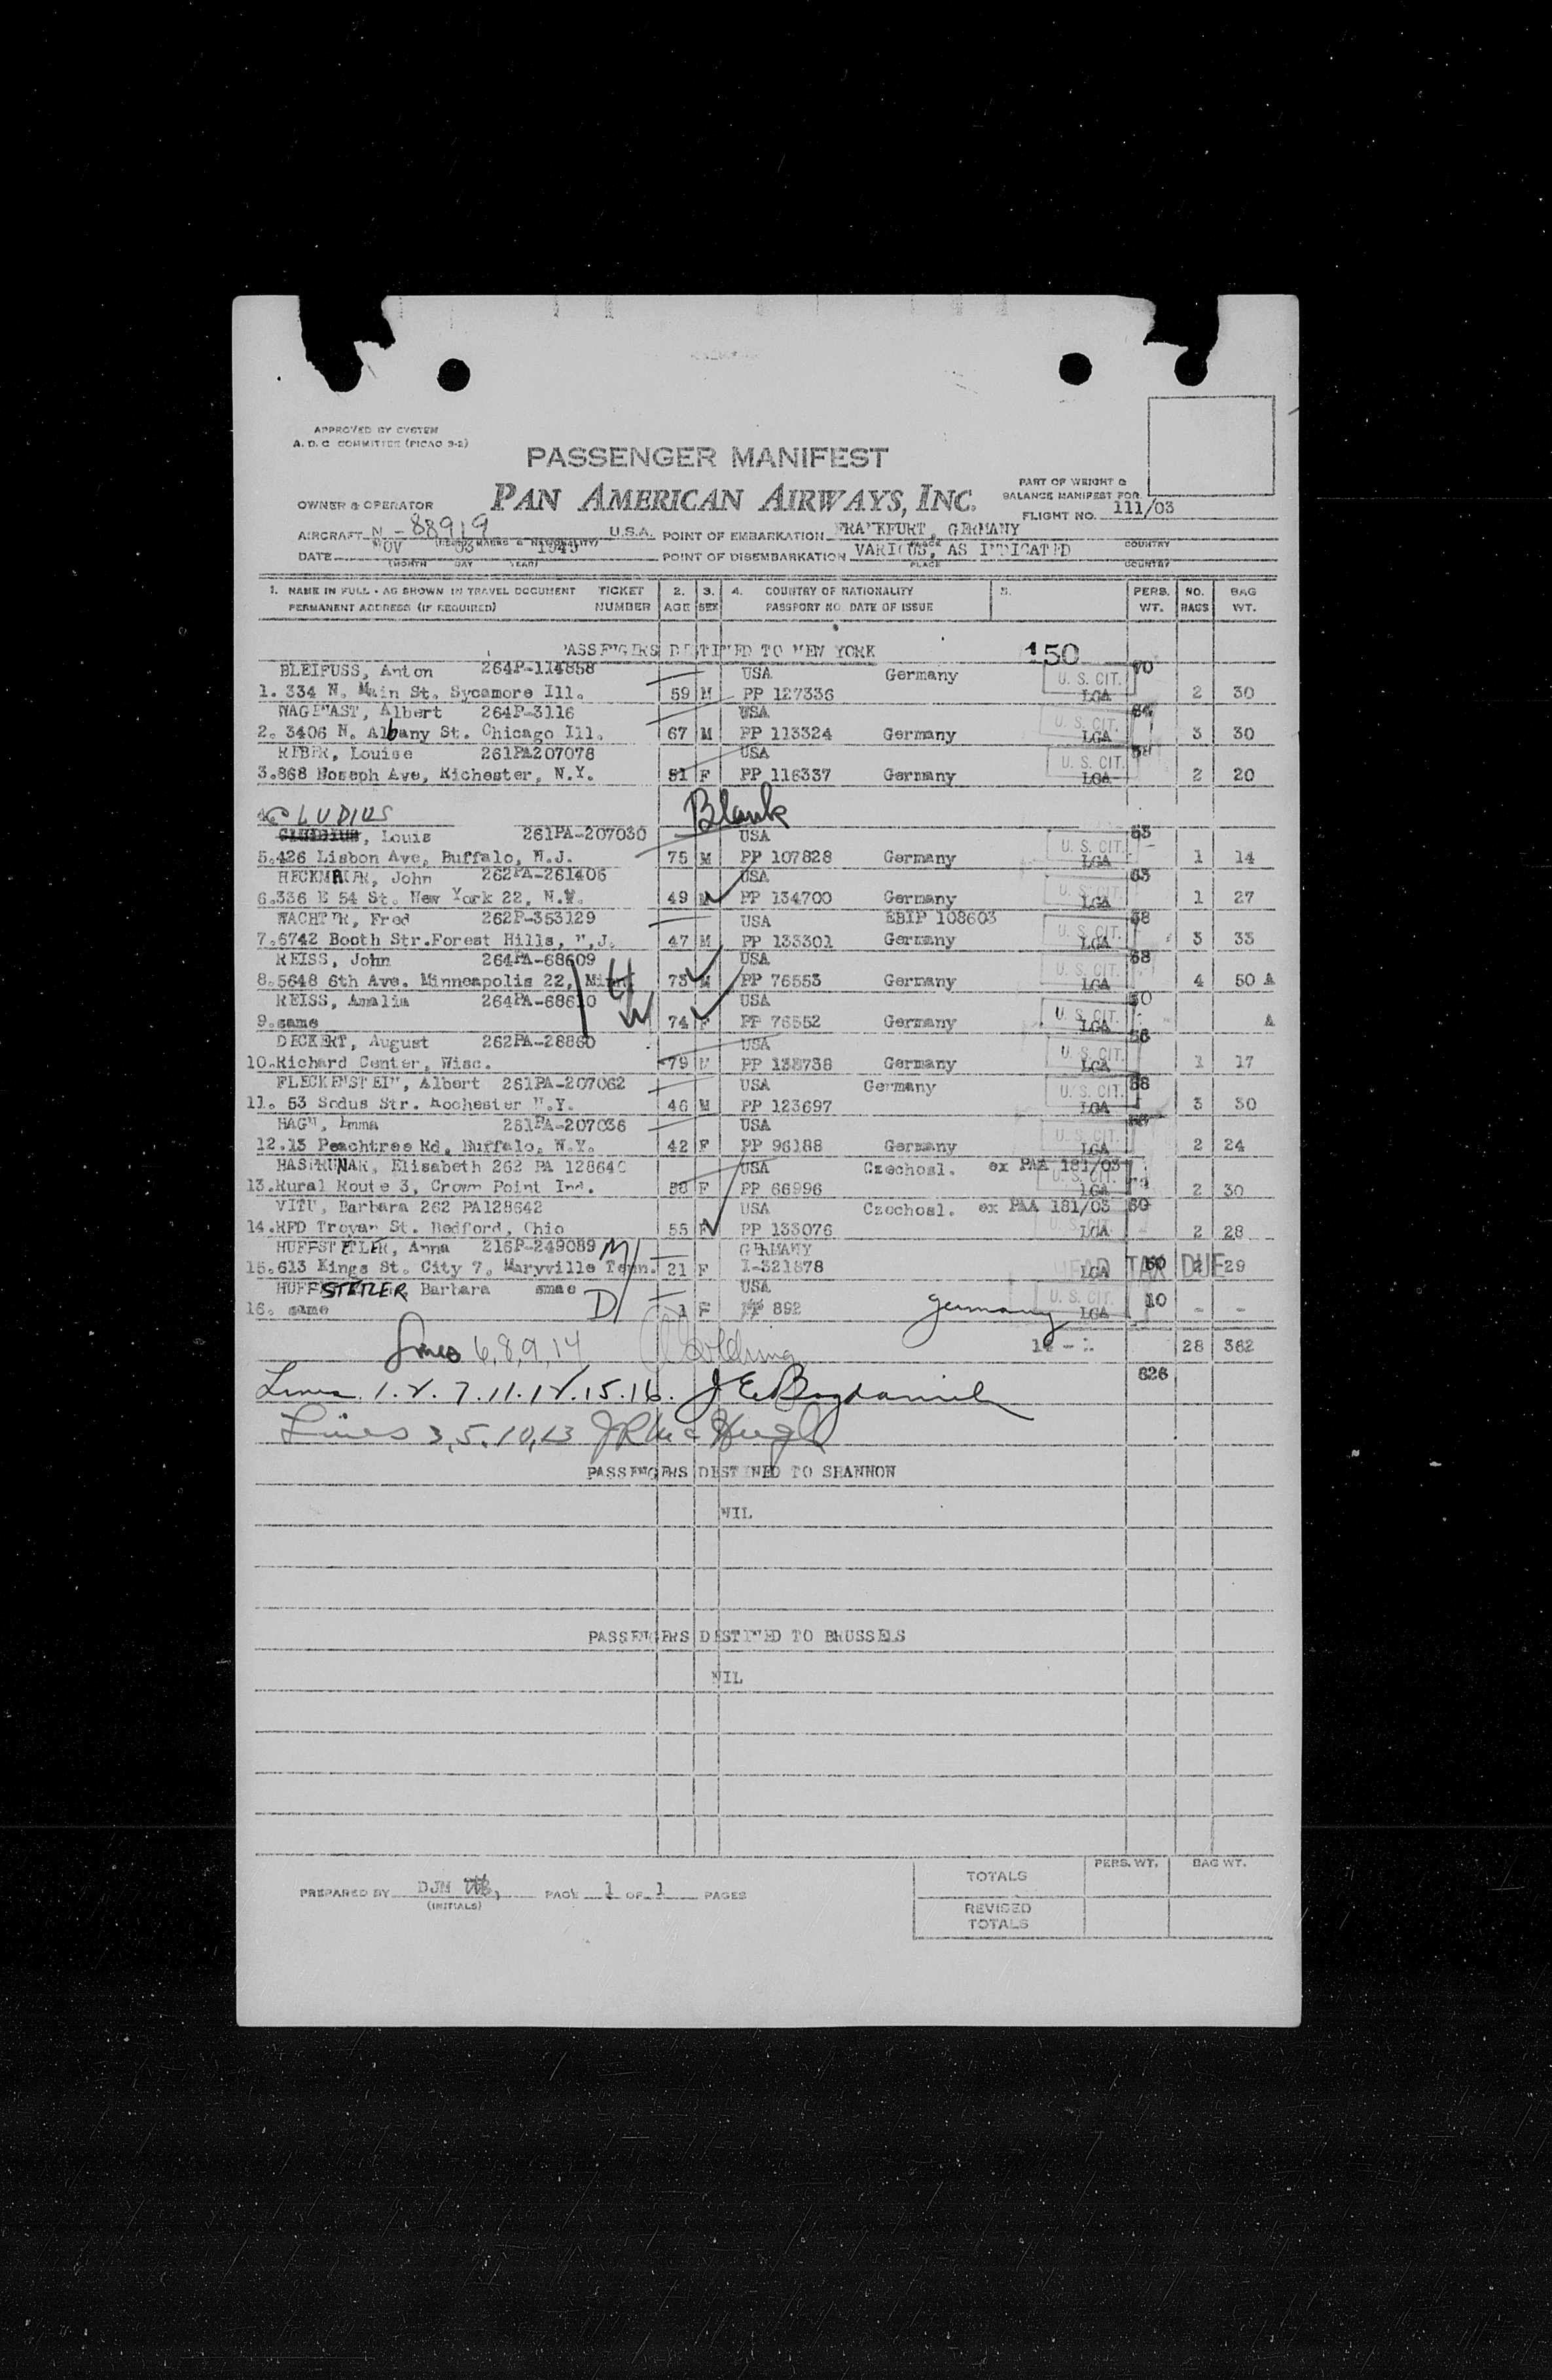 APPROVED BY SYSTEM
A. D. C COMMITTEE (PICAO 9-2)
PASSENGER MANIFEST
PAN AMERICAN AIRWAYS, INC.
PART OF WEIGHT &
BALANCE MANIFEST FOR
OWNER & OPERATOR
FLIGHT NO. 111/03
AIRCRAFT N-88919 U.S.A. POINT OF EMBARKATION FRANKFURT, GERMANY
DATE NOV 03 1949 POINT OF DISEMBARKATION VARIOUS, AS INDICATED
(MONTH DAY YEAR) PLACE COUNTRY
1. NAME IN FULL - AS SHOWN IN TRAVEL DOCUMENT TICKET 2. 3. 4. COUNTRY OF NATIONALITY 5. PERS. NO. BAG
PERMANENT ADDRESS (IF REQUIRED) NUMBER AGE SEX PASSPORT NO. DATE OF ISSUE WT. BAGS WT.
PASSENGERS DESTINED TO NEW YORK 150
BLEIFUSS, Anton 264P-114858 USA Germany U. S. CIT. 70
1. 334 N. Main St. Sycamore Ill. 59 M PP 127336 LGA 2 30
WAGENAST, Albert 264P-3116 USA U. S. CIT.
2. 3406 N. Albany St. Chicago Ill. 67 M PP 113324 Germany LGA 3 30
REBER, Louise 261PA207078 USA U. S. CIT.
3.868 Hoseph Ave, Richester, N.Y. 51 F PP 116337 Germany LGA 2 20
CLUDIUS Blank
, Louis 261PA-207030 USA U. S. CIT. 63
5.426 Lisbon Ave, Buffalo, N.J. 75 M PP 107828 Germany LGA 1 14
HECKMAIER, John 262PA-261406 USA U. S. CIT. 63
6.336 E 54 St. New York 22, N.Y. 49 M PP 134700 Germany LGA 1 27
WACHTER, Fred 262P-353129 USA EBIP 108603 U. S. CIT.
7.6742 Booth Str.Forest Hills, N,J. 47 M PP 133301 Germany LGA 3 33
REISS, John 264PA-68609 USA U. S. CIT. 68
8.5648 6th Ave. Minneapolis 22, Minn 73 M PP 76553 Germany LGA 4 50 A
REISS, Amalia 264PA-68610 USA U. S. CIT.
9.same 74 F PP 76552 Germany LGA A
DECKERT, August 262PA-28860 USA U. S. CIT.
10.Richard Center, Wisc. 79 M PP 138738 Germany LGA 1 17
FLECKENSTEIN, Albert 261PA-207062 USA Germany U. S. CIT.
11. 53 Sodus Str. Rochester N.Y. 46 M PP 123697 LGA 3 30
HAGN, Emma 261PA-207036 USA U. S. CIT.
12.13 Peachtree Rd, Buffalo, N.Y. 42 F PP 96188 Germany LGA 2 24
HASPRUNAR, Elisabeth 262 PA 128640 USA Czechosl. ex PAA 181/03 U. S. CIT.
13.Rural Route 3, Crown Point Ind. 58 F PP 66996 LGA 2 30
VITU, Barbara 262 PA128642 USA Czechosl. ex PAA 181/03 60
14.RFD Troyan St. Bedford, Ohio 55 F PP 133076 U. S. CIT. LGA 2 28
HUFFSTETLER, Anna 216P-249089 M GERMANY
15.613 Kings St. City 7, Maryville Tenn. 21 F I-321878 LGA HEAD TAX DUE 29
HUFFSTETLER Barbara smae D USA U. S. CIT. 10
16. same 1 F PP 892 Germany LGA - -
Lines 6,8,9,14 28 362
826
Lines 1.2.7.11.12.15.16.
Lines 3,5,10,13
PASSENGERS DESTINED TO SHANNON
NIL
PASSENGERS DESTINED TO BRUSSELS
NIL
PERS. WT. BAG WT.
TOTALS
PREPARED BY DJM PAGE 1 OF 1 PAGES
(INITIALS)
REVISED
TOTALS